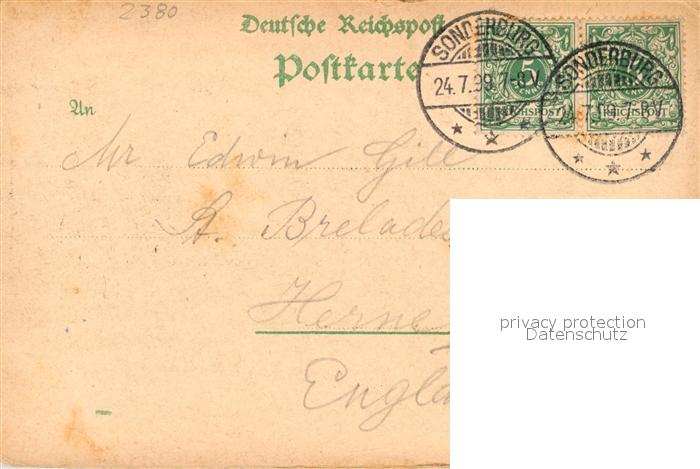 2380
Deutsche Reichspost
Postkarte
SONDERBURG
24.7.99 7-8V.
5
REICHSPOST
SONDERBURG
7-8V.
REICHSPOST
An
Mr Edwin Gill
St. Brelades
Herne
Engla
privacy protection
Datenschutz